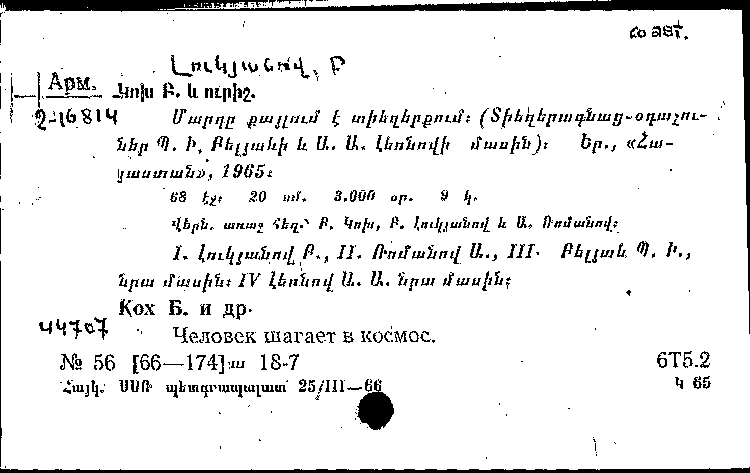 Լուկյանով, Բ
Арм. Կոխ Բ. և ուրիշ.
2-16814 Մարդը քայլում է տիեզերքում։ (Տիեզերագնաց-օդաչու-
ներ Պ. Ի. Բելյաևի և Ա. Ա. Լեոնովի մասին)։ Եր., «Հա-
յաստան», 1965։
68 էջ։ 20 սմ. 3.000 օր. 9 կ.
Վերն. առաջ հեղ.՝ Բ. Կոխ, Բ. Լուկյանով և Ա. Ռոմանով։
I. Լուկյանով Բ., II. Ռոմանով Ա., III. Բելյաև Պ. Ի.,
նրա մասին։ IV Լեոնով Ա. Ա. նրա մասին։
Кох Б. и др.
44707 Человек шагает в космос.
№ 56 [66—174] 18-7 6Т5.2
Հայկ. ՍՍՌ պետգրապալատ 25/III—66 Կ 65